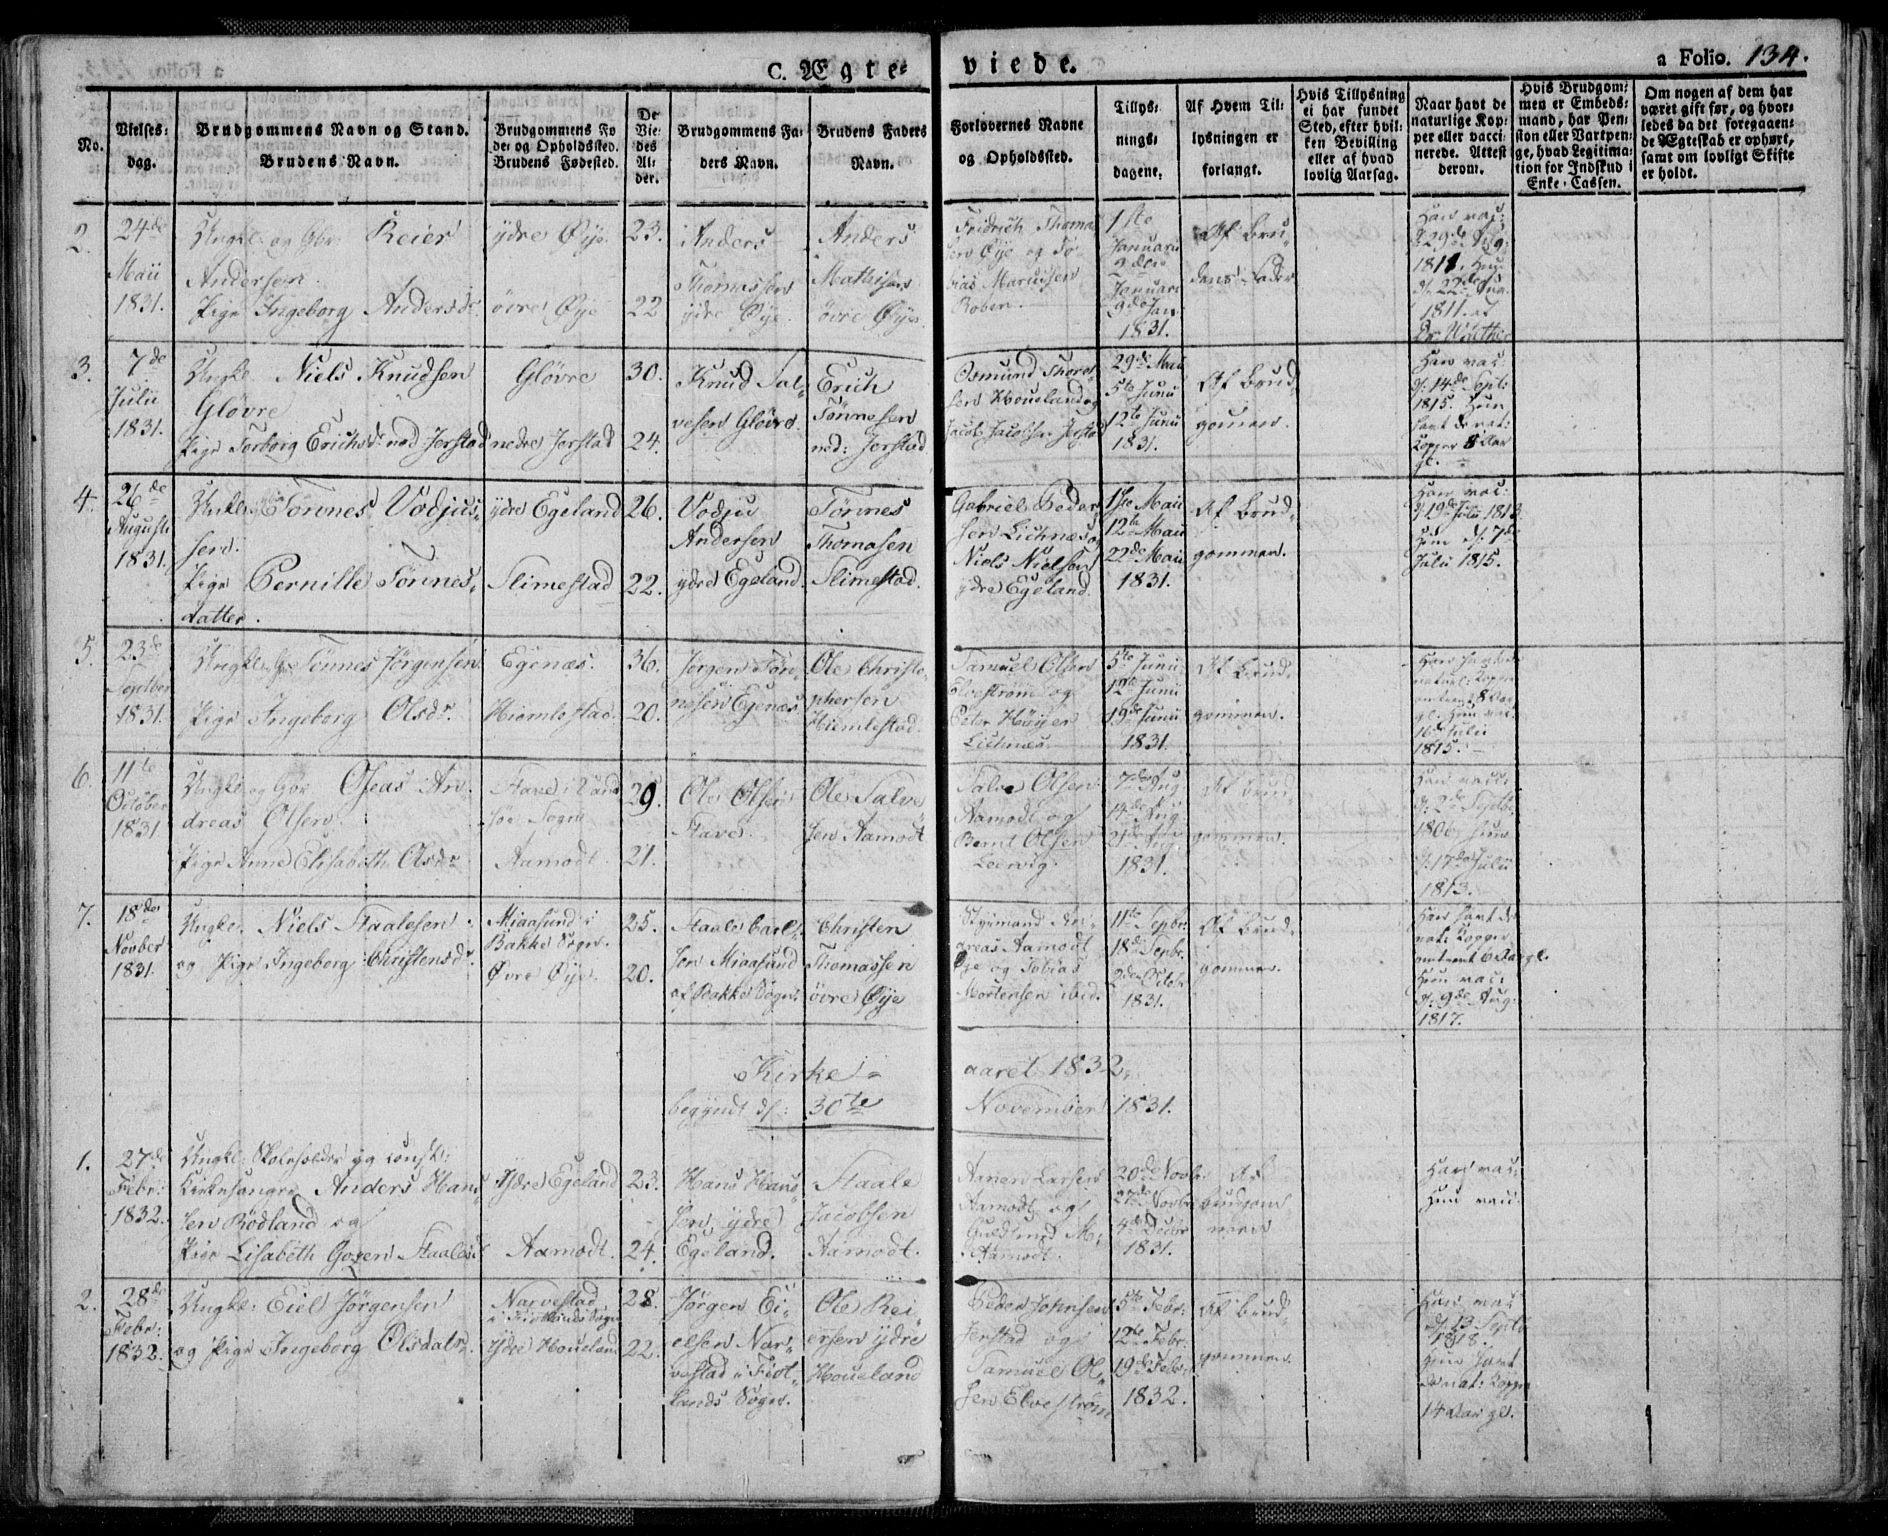 C. Ægte=
viede.
a Folio. 134.
No.
Vielses=
dag.
Brudgommens Navn og Stand.
Brudens Navn.
Brudgommens Fø
de= og Opholdssted.
Brudens Fødested.
De
Vie=
des
Al=
der.
Brudgommens Fa=
ders Navn.
Brudens Faders
Navn.
Forlovernes Navne
og Opholdssted.
Tillys=
nings=
dagene.
Af Hvem Til=
lysningen er
forlangt.
Hvis Tillysning
ei har fundet
Sted, efter hvil=
ken Bevilling
eller af hvad
lovlig Aarsag.
Naar havt de
naturlige Kop=
per eller vacci=
nerede. Attest
derom.
Hvis Brudgom=
men er Embeds=
mand, har Pen=
sion eller Vartpen=
ge, hvad Legitima=
tion for Indskud i
Enke=Cassen.
Om nogen af dem har
været gift før, og hvor=
ledes da det foregaaen=
de Ægteskab er ophørt,
samt om lovligt Skifte
er holdt.
2.
24de
Maii
1831.
Ungk: og Gbr. Reier
Andersen.
Pige Ingeborg Andersdr
ydre Øye
øvre Øye
23.
22
Anders
Thomassen
ydre Øye.
Anders
Mathisen
øvre Øye.
Fridrich Thoma
sen Øye og To=
bias Marcussen
Roben.
1ste
Januarii
2den
Januarii
9de Jan
1831.
Af Bru=
dens Fader
Han vac:
d: 29de Aug:
1811. Hun
d: 22de Aug.
1811. af
Dr. Wüthe
3.
7de
Julii
1831.
Ungk. Niels Knudsen
Gløvre
Pige Torborg Erichsdr ned Jerstad
Gløvre
nedre Jerstad
30.
24.
Knud Sal=
vesen Gløvre.
Erich
Tønnesen
ned: Jerstad
Osmund Thorel
sen Houeland og
Jacob Jacobsen Jerstad
29de Maii
5te Junii
12te Junii
1831.
Af Brud=
gomen.
Han vac
d: 14de Sept:
1815. Hun
havt de nat:
Kopper 8 Aar
gl.
4.
26de
Augusti
1831.
Ungk. Tönnes Vodjus=
sen.
Pige Pernille Tönnes=
datter.
ydre Egeland
Slimestad
26.
22.
Vodjus
Andersen
ydre Egeland.
Tönnes
Thomasen
Slimestad.
Gabriel Peder
sen Lichnæs og
Niels Nielsen
ydre Egeland.
1ste Maii
12te Maii
22de Maii
1831.
Af Brud=
gommen.
Han vac:
d: 19de Julii 1813
Hun d: 7de
Julii 1815.
5.
23de
Septber
1831.
Ungk. Tönnes Jørgensen
Pige Ingeborg Olsdr.
Egenæs.
Hiemlestad.
36.
20.
Jørgen Tön=
nesen Egenæs
Ole Christo=
phersen
Hiemlestad.
Samuel Olsen
Elvestrøm og
Peter Høyer
Lichnæs.
5te Junii
12te Junii
19de Junii
1831.
Af Brud=
gommen.
Han havt de
naturl: Kopper
omtrent 8 Aar
gl. Hun vac:
16de Julii
1815.
6.
11te
October
1831
Ungk. og Gbr Oseas An=
dreas Olsen
Pige Anne Elisabeth Olsdr
Stave i Vand
søe Sogn
Aamodt.
29.
21.
Ole Olsen
Stave.
Ole Salve
sen Aamodt
Salve Olsen
Aamodt og
Bernt Olsen
Leervig.
7de Aug
14de Aug.
21de Aug.
1831.
Af Brud
gommen.
Han vacc:
d: 2de Septbr
1806, Hun
d: 17de Julii
1813.
7.
18de
Novber
1831.
Ungk. Niels Staalesen
og Pige Ingeborg Christensdr.
Miaasund i
Bakke Sogn.
Øvre Øye.
25.
20.
Staale Carl=
sen Miaasund
af Bakke Sogn.
Christen
Thomassen
øvre Øye
Styrmand An=
dreas Aamodt
Øye og Tobias
Mortensen ibid.
11te Sepbr.
18de Sepbr.
2den Octobr
1831.
Af Brud=
gommen.
Han havt de
nat: Kopper
omtrent 6 Aar gl.
Hun vac:
d: 9de Aug:
1817.
Kirke=
aaret 1832,
begyndt d: 30te
November 1831.
1.
27de
Febr:
1832.
Ungk: Skoleholder og const:
Kirkesanger Anders Hans=
sen Rödland og
Pige Lisabeth Goren Staalesdr
Ydre Egeland
Aamodt.
23.
24.
Hans Hans=
sen, ydre
Egeland.
Staale
Jacobsen
Aamodt.
Aanen Larsen
Aamodt og
Guldmund M=
Aamodt.
20de Novbr.
27de Novbr
4de Decbr
1831.
Af
Brudgom=
men
Han vac:
Hun vac.
2.
28de
Febr:
1832.
Ungk: Eiel Jørgensen
og Pige Ingeborg Olsdatr.
Narvestad
i Fiotlands Sogn
Ydre Houeland
28.
22.
Jørgen Ei=
elsen Nar=
vestad i Fiot=
lands Sogn.
Ole Rei=
ersen ydre
Houeland
Peder Johnsen
Jerstad og
Samuel Ol=
sen Elvestrøm
5te Febr:
12te Febr:
19de Febr:
1832.
Af Brud=
gommen.
Han vac
d: 13 Septb
1818.
Hun havt
de nat: Kopper
14 Aar gl.